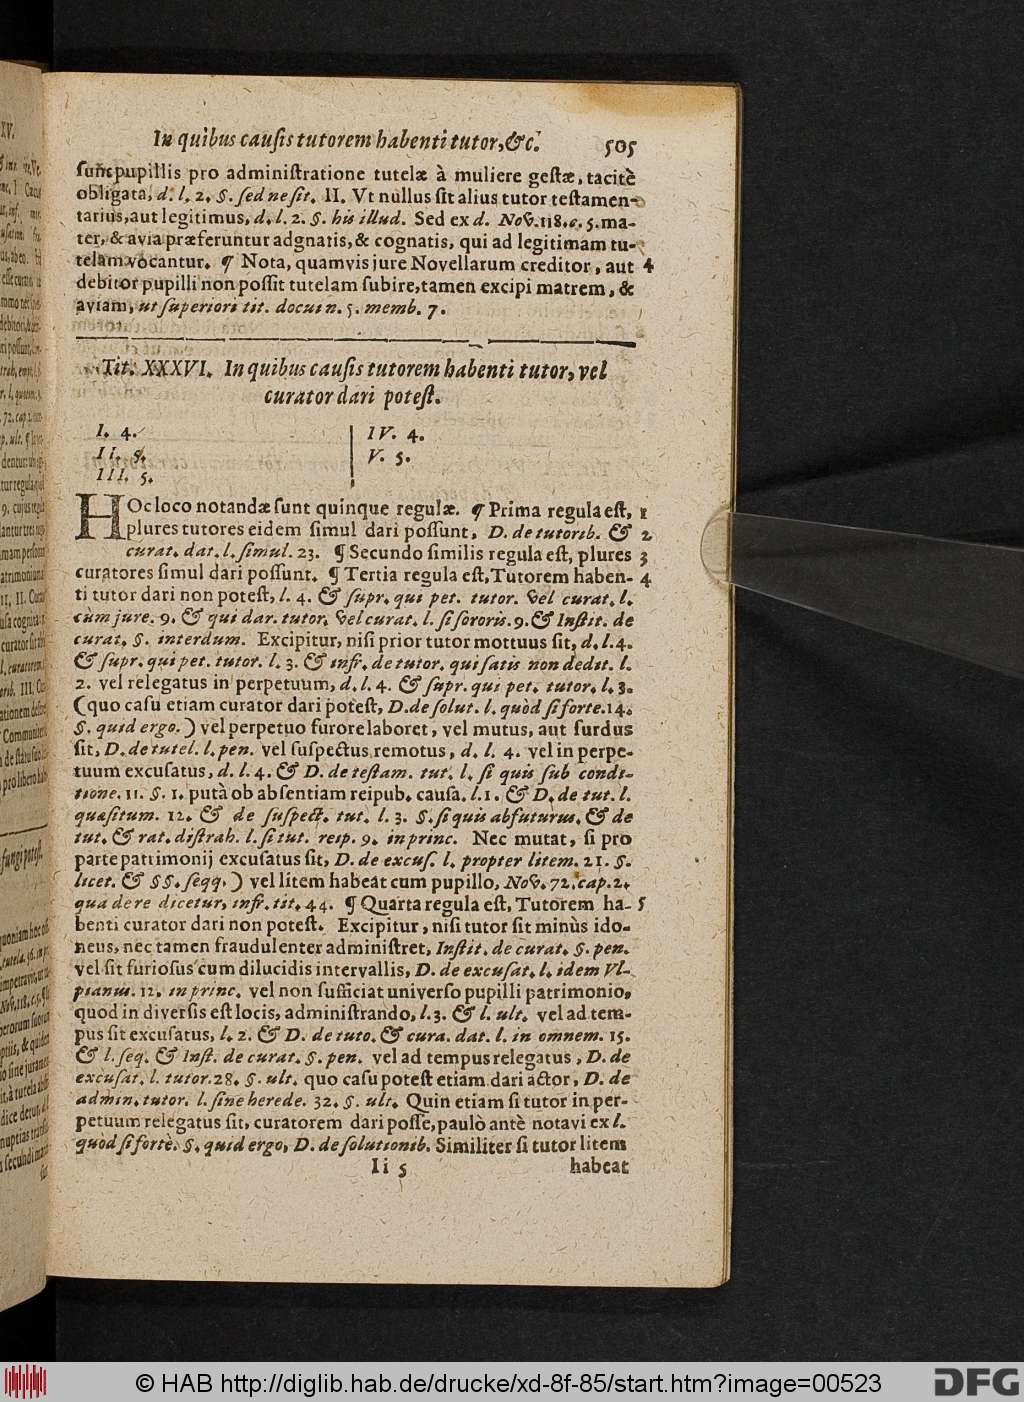 In quibus causis tutorem habenti tutor, &c. 505
sunt pupillis pro administratione tutelæ à muliere gestæ, tacitè
obligata, d. l. 2. §. sed ne sit. II. Vt nullus sit alius tutor testamen-
tarius, aut legitimus, d. l. 2. §. his illud. Sed ex d. Nov. 118. c. 5. ma-
ter, & avia præferuntur adgnatis, & cognatis, qui ad legitimam tu-
telam vocantur. ¶ Nota, quamvis jure Novellarum creditor, aut 4
debitor pupilli non possit tutelam subire, tamen excipi matrem, &
aviam, ut superiori tit. docui n. 5. memb. 7.
Tit. XXXVI. In quibus causis tutorem habenti tutor, vel
curator dari potest.
I. 4. IV. 4.
II. 5. V. 5.
III. 5.
HOc loco notandæ sunt quinque regulæ. ¶ Prima regula est, 1
plures tutores eidem simul dari possunt, D. de tutorib. & 2
curat. dat. l. simul. 23. ¶ Secundo similis regula est, plures 3
curatores simul dari possunt. ¶ Tertia regula est, Tutorem haben- 4
ti tutor dari non potest, l. 4. & supr. qui pet. tutor. vel curat. l.
cùm jure. 9. & qui dar. tutor. vel curat. l. si sororis. 9. & Instit. de
curat. §. interdum. Excipitur, nisi prior tutor mottuus sit, d. l. 4.
& supr. qui pet. tutor. l. 3. & infr. de tutor. qui satis non dedit. l.
2. vel relegatus in perpetuum, d. l. 4. & supr. qui pet. tutor. l. 3.
(quo casu etiam curator dari potest, D. de solut. l. quòd si forte. 14.
§. quid ergo.) vel perpetuo furore laboret, vel mutus, aut surdus
sit, D. de tutel. l. pen. vel suspectus remotus, d. l. 4. vel in perpe-
tuum excusatus, d. l. 4. & D. de testam. tut. l. si quis sub condi-
tione. 11. §. 1. putà ob absentiam reipub. causa. l. 1. & D. de tut. l.
quæsitum. 12. & de suspect. tut. l. 3. §. si quis abfuturus. & de
tut. & rat. distrah. l. si tut. reip. 9. in princ. Nec mutat, si pro
parte patrimonij excusatus sit, D. de excus. l. propter litem. 21. §.
licet. & §§. seqq.) vel litem habeat cum pupillo, Nov. 72. cap. 2.
qua de re dicetur, infr. tit. 44. ¶ Quarta regula est, Tutorem ha- 5
benti curator dari non potest. Excipitur, nisi tutor sit minùs ido-
neus, nec tamen fraudulenter administret, Instit. de curat. §. pen.
vel sit furiosus cum dilucidis intervallis, D. de excusat. l. idem Vl-
pianus. 12. in princ. vel non sufficiat universo pupilli patrimonio,
quod in diversis est locis, administrando, l. 3. & l. ult. vel ad tem-
pus sit excusatus, l. 2. & D. de tuto. & cura. dat. l. in omnem. 15.
& l. seq. & Inst. de curat. §. pen. vel ad tempus relegatus, D. de
excusat. l. tutor. 28. §. ult. quo casu potest etiam dari actor, D. de
admin. tutor. l. sine herede. 32. §. ult. Quin etiam si tutor in per-
petuum relegatus sit, curatorem dari posse, paulò antè notavi ex l.
quòd si fortè. §. quid ergo, D. de solutionib. Similiter si tutor litem
Ii 5 habeat
© HAB http://diglib.hab.de/drucke/xd-8f-85/start.htm?image=00523
DFG